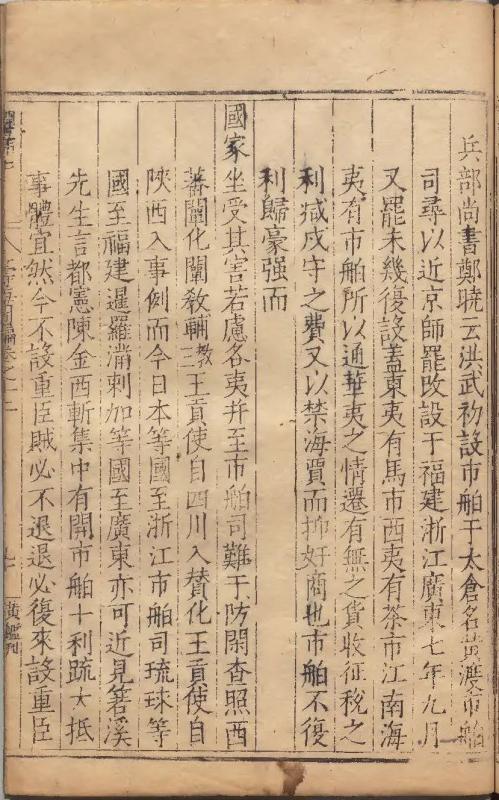 兵部尚書鄭曉云洪武初設市舶于太倉名黃渡市舶
司尋以近京師罷改設于福建浙江廣東七年九月
又罷未幾復設蓋東夷有馬市西夷有茶市江南海
夷有市舶所以通華夷之情遷有無之貨收征稅之
利減戍守之費又以禁海賈而抑奸商也市舶不復
利歸豪强而
國家坐受其害若慮各夷并至市舶司難于防閑查照西
蕃闡化闡教輔教三王貢使自四川入賛化王貢使自
陜西入事例而今日本等國至浙江市舶司琉球等
國至福建暹羅滿剌加等國至廣東亦可近見箬溪
先生言都憲陳金西斬集中有開市舶十利疏大抵
事體宜然今不設重臣賊必不退退必復來設重臣